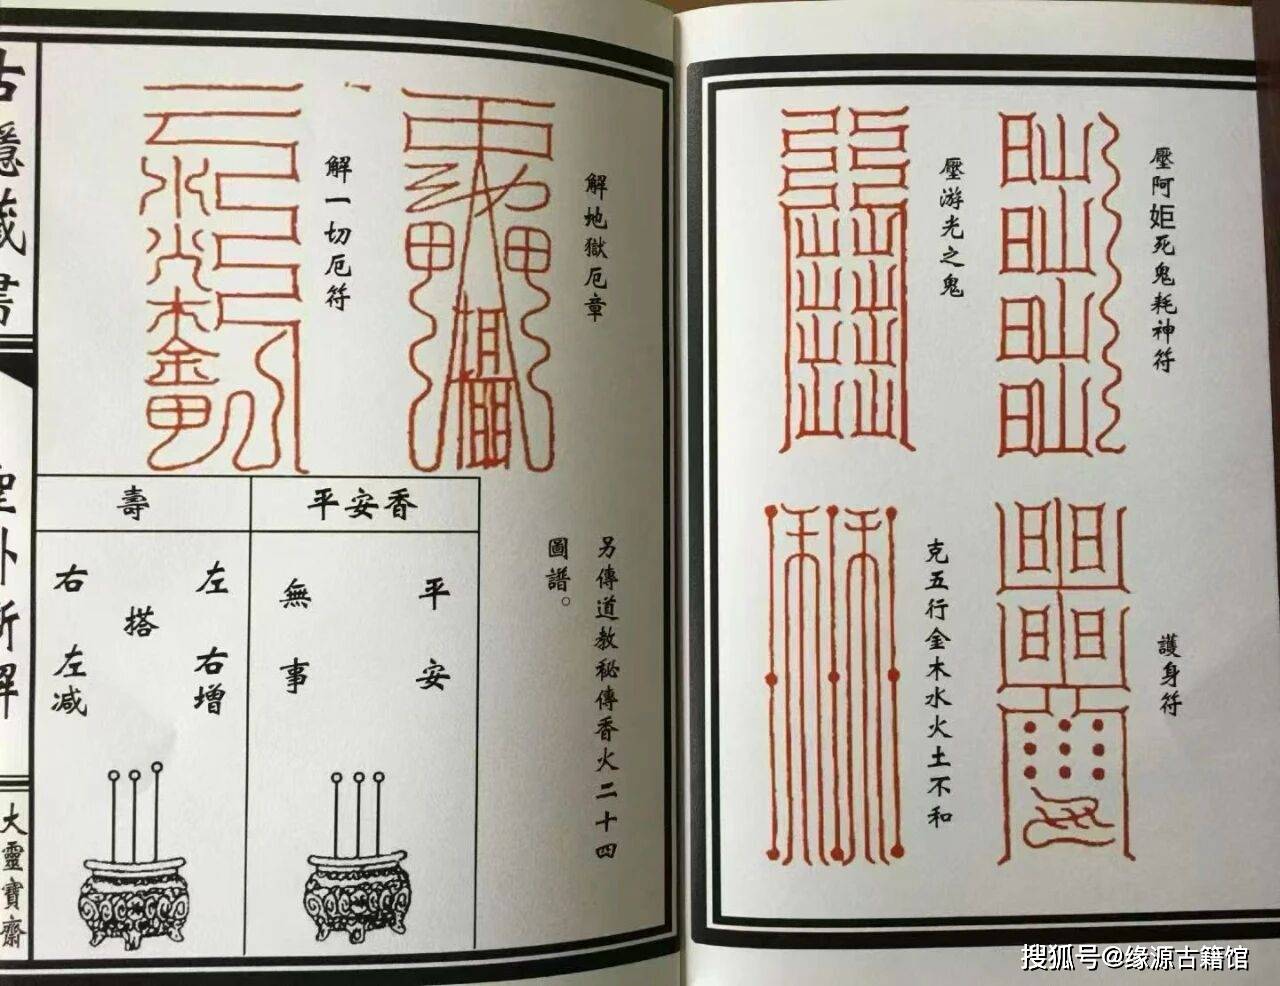 壓阿姖死鬼耗神符
壓游光之鬼
護身符
克五行金木水火土不和
解地獄厄章
解一切厄符
另傳道教秘傳香火二十四
圖譜。
平安香
平安
無事
壽
左右增
搭
右左减
古隱藏書
聖卦新解
大靈寶齋
搜狐号@缘源古籍馆